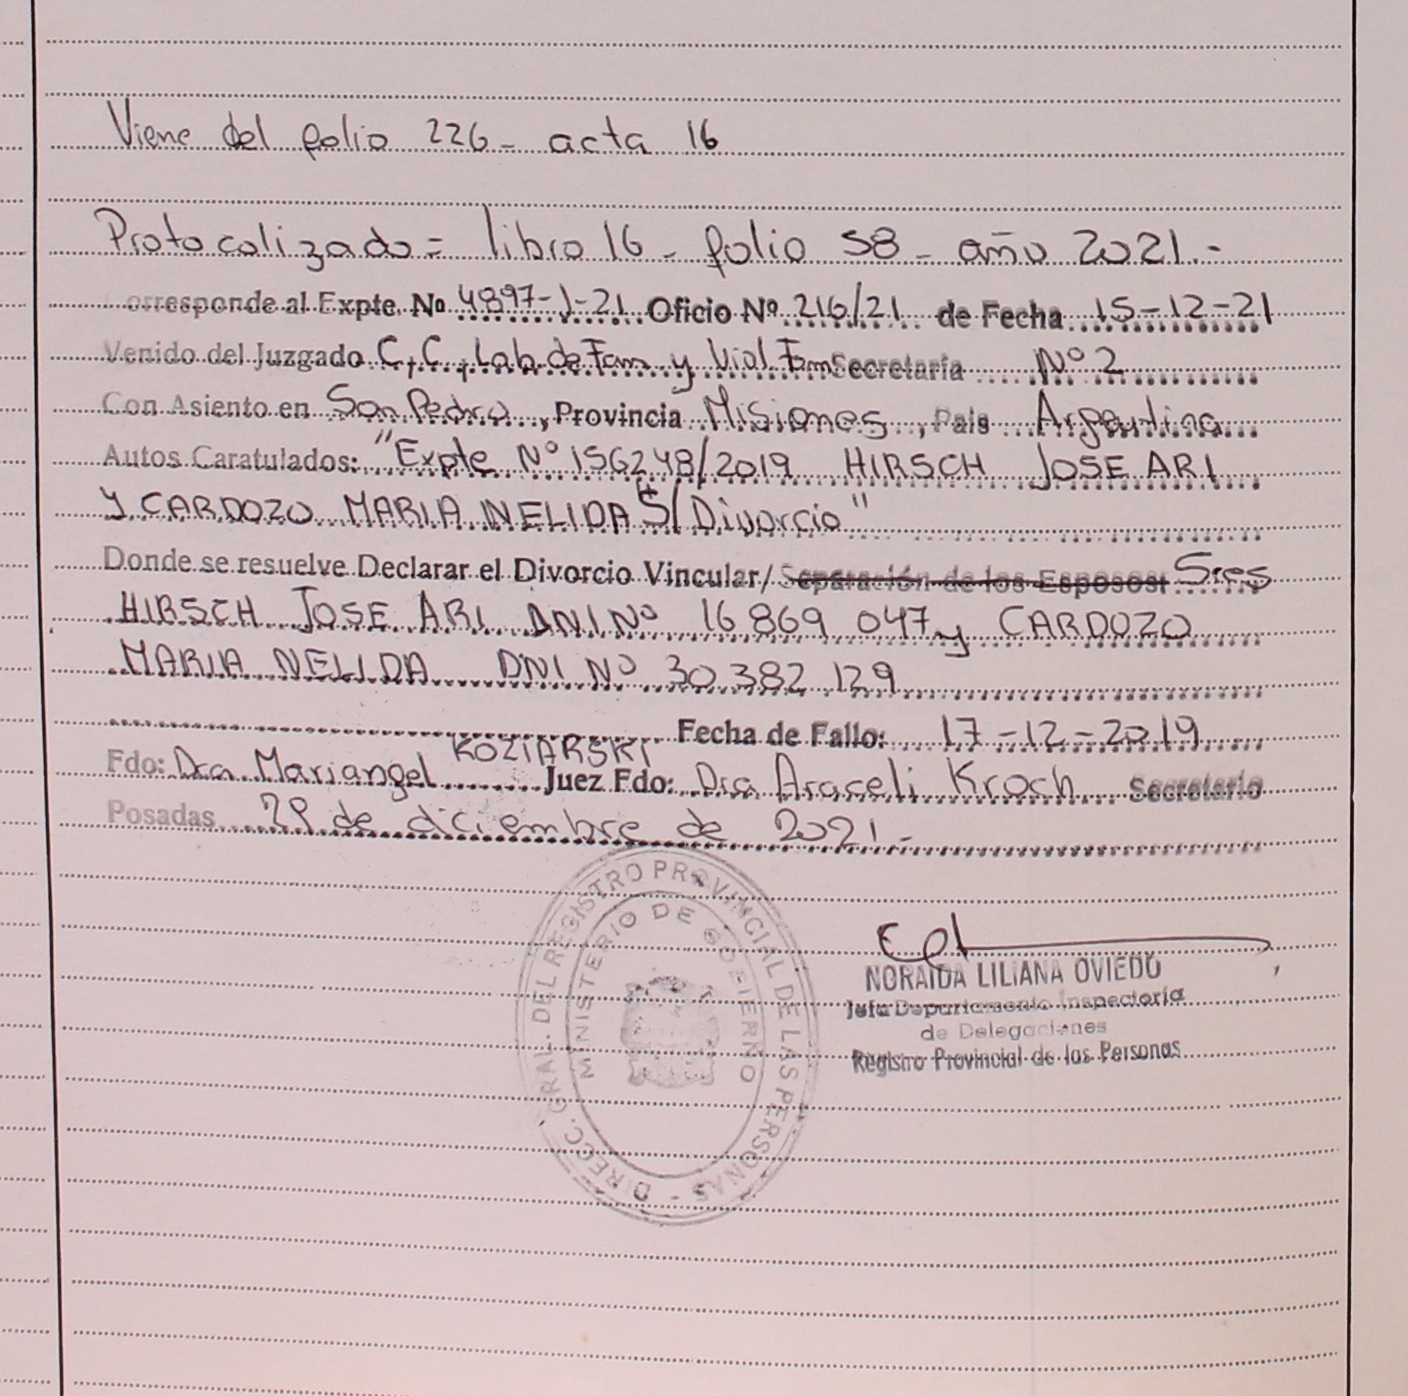 Viene del folio 226 - acta 16
Protocolizado = libro 16 - folio 58 - año 2021.-
Corresponde al Expte. Nº 4897-J-21 Oficio Nº 216/21 de Fecha 15-12-21
Venido del Juzgado C, C, Lab. de Fam y Viol Fam Secretaría Nº 2
Con Asiento en San Pedro, Provincia Misiones, País Argentina
Autos Caratulados: "Expte Nº 156248/2019 HIRSCH JOSE ARI
y CARDOZO MARIA NELIDA S/ Divorcio"
Donde se resuelve Declarar el Divorcio Vincular/ Separación de los Esposos: Sres
HIRSCH JOSE ARI DNI Nº 16 869 047 y CARDOZO
MARIA NELIDA DNI Nº 30 382 129
Fecha de Fallo: 17-12-2019
Fdo: Dra Mariangel KOZIARSKI Juez Fdo: Dra Araceli Kroch Secretario
Posadas 29 de diciembre de 2021.-
DIRECC. GRAL. DEL REGISTRO PROVINCIAL DE LAS PERSONAS -
MINISTERIO DE GOBIERNO
NORAIDA LILIANA OVIEDO
Jefa Departamento Inspectoría
de Delegaciones
Registro Provincial de las Personas